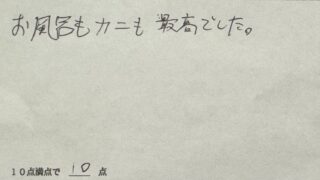 お風呂もカニも最高でした。
10点満点で 10 点